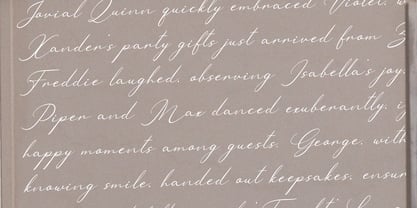 Jovial Quinn quickly embraced Violet, w
Xander's party gifts just arrived from
Freddie laughed, observing Isabella's joy.
Piper and Max danced exuberantly, i
happy moments among guests. George, with
knowing smile, handed out keepsakes, ensur